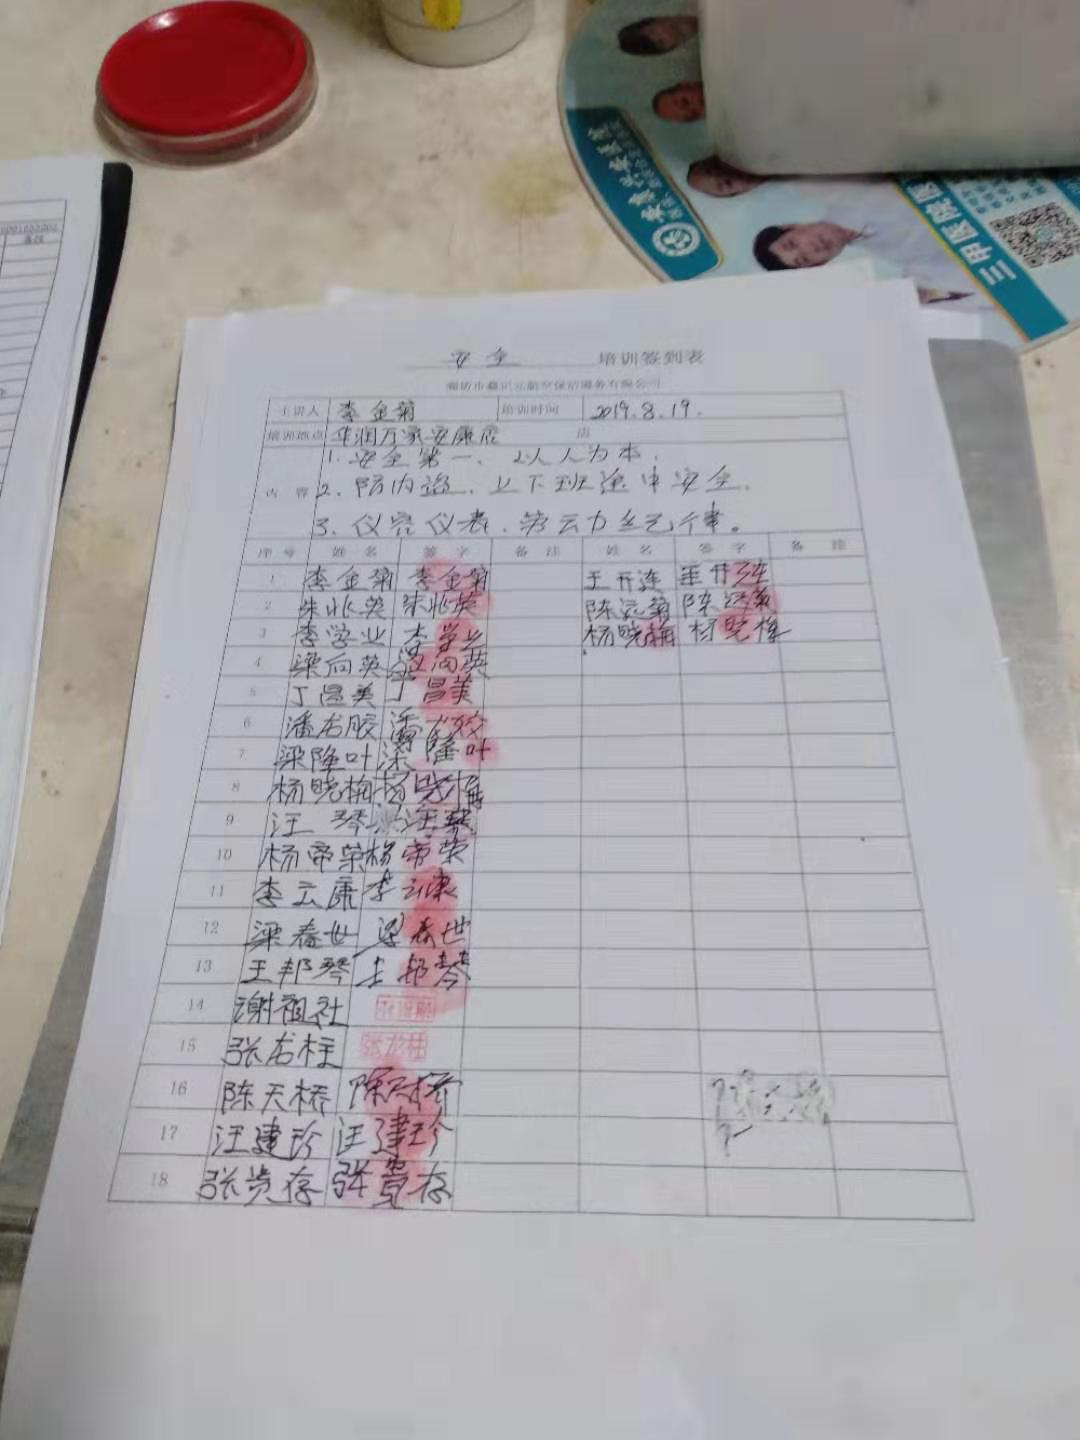 安全 培训签到表
主讲人 李金菊 培训时间 2019.8.19.
培训地点 华润万家安康店 店
内容 1.安全第一、以人为本.
2、防内盗、上下班途中安全.
3、仪容仪表、劳动力
序号 姓名 签字 备注 姓名 签字 备注
1 李金菊 李金菊 王开连 王开连
2 朱兆英 朱兆英 陈远菊 陈远菊
3 李学业 李学业 杨晓梅 杨晓梅
4 梁向英 梁向英
5 丁昌美 丁昌美
6 潘龙胶 潘龙
7 梁隆叶 梁隆叶
8 杨晓梅 杨晓梅
9 汪琴 汪琴
10 杨帝荣 杨帝荣
11 李云康 李云康
12 梁春世 梁春世
13 王邦琴 王邦琴
14 谢祖社
15 张龙柱 张龙柱
16 陈天桥 陈天桥
17 汪建珍 汪建珍
18 张贵存 张贵存
三甲医院医
备注